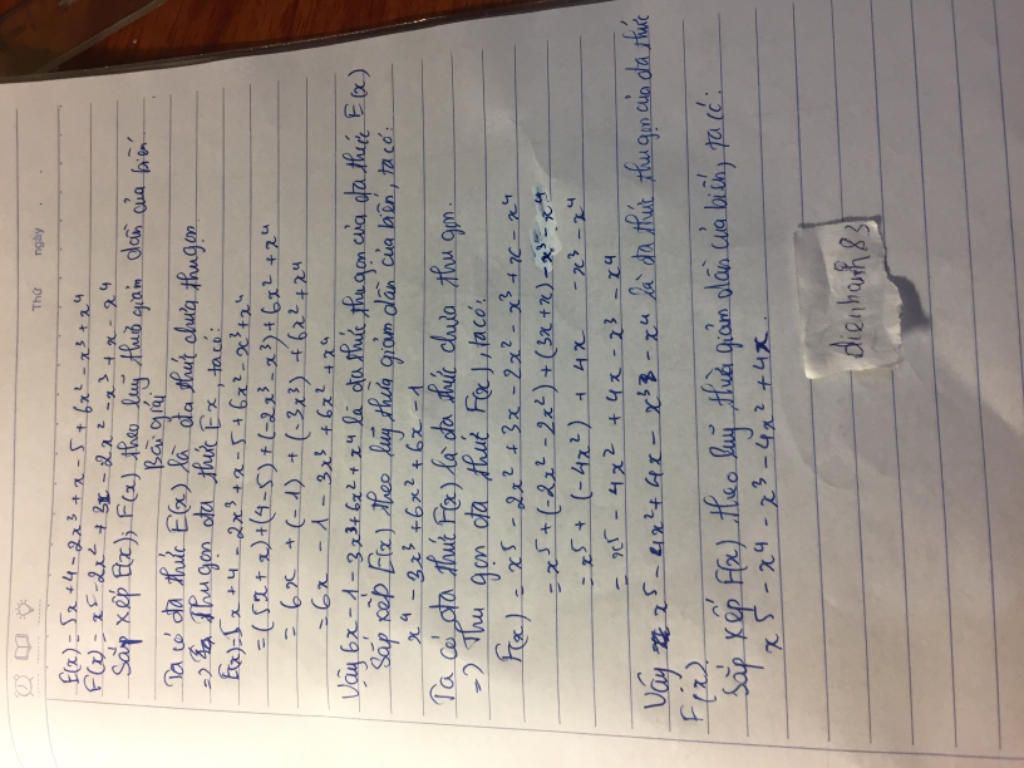 Thứ ngày
E(x) = 5x + 4 - 2x³ + x - 5 + 6x² - x³ + x⁴
F(x) = x⁵ - 2x² + 3x - 2x² - x³ + x - x⁴
Sắp xếp E(x), F(x) theo luỹ thừa giảm dần của biến
Bài giải
Ta có đa thức E(x) là đa thức chưa thu gọn
=> Thu gọn đa thức Ex, ta có:
E(x) = 5x + 4 - 2x³ + x - 5 + 6x² - x³ + x⁴
= (5x + x) + (4 - 5) + (-2x³ - x³) + 6x² + x⁴
= 6x + (-1) + (-3x³) + 6x² + x⁴
= 6x - 1 - 3x³ + 6x² + x⁴
Vậy 6x - 1 - 3x³ + 6x² + x⁴ là đa thức thu gọn của đa thức E(x)
Sắp xếp E(x) theo luỹ thừa giảm dần của biến, ta có:
x⁴ - 3x³ + 6x² + 6x - 1
Ta có đa thức F(x) là đa thức chưa thu gọn.
=> Thu gọn đa thức F(x), ta có:
F(x) = x⁵ - 2x² + 3x - 2x² - x³ + x - x⁴
= x⁵ + (-2x² - 2x²) + (3x + x) - x³ - x⁴
= x⁵ + (-4x²) + 4x - x³ - x⁴
= x⁵ - 4x² + 4x - x³ - x⁴
Vậy x⁵ - 4x² + 4x - x³ - x⁴ là đa thức thu gọn của đa thức
F(x)
Sắp xếp F(x) theo luỹ thừa giảm dần của biến, ta có:
x⁵ - x⁴ - x³ - 4x² + 4x
dienhanh83